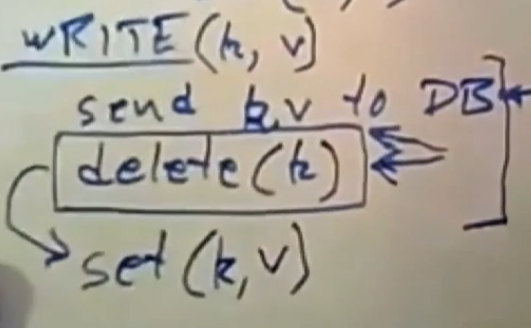 WRITE (k, v)
send k,v to DB
delete (k)
set (k, v)